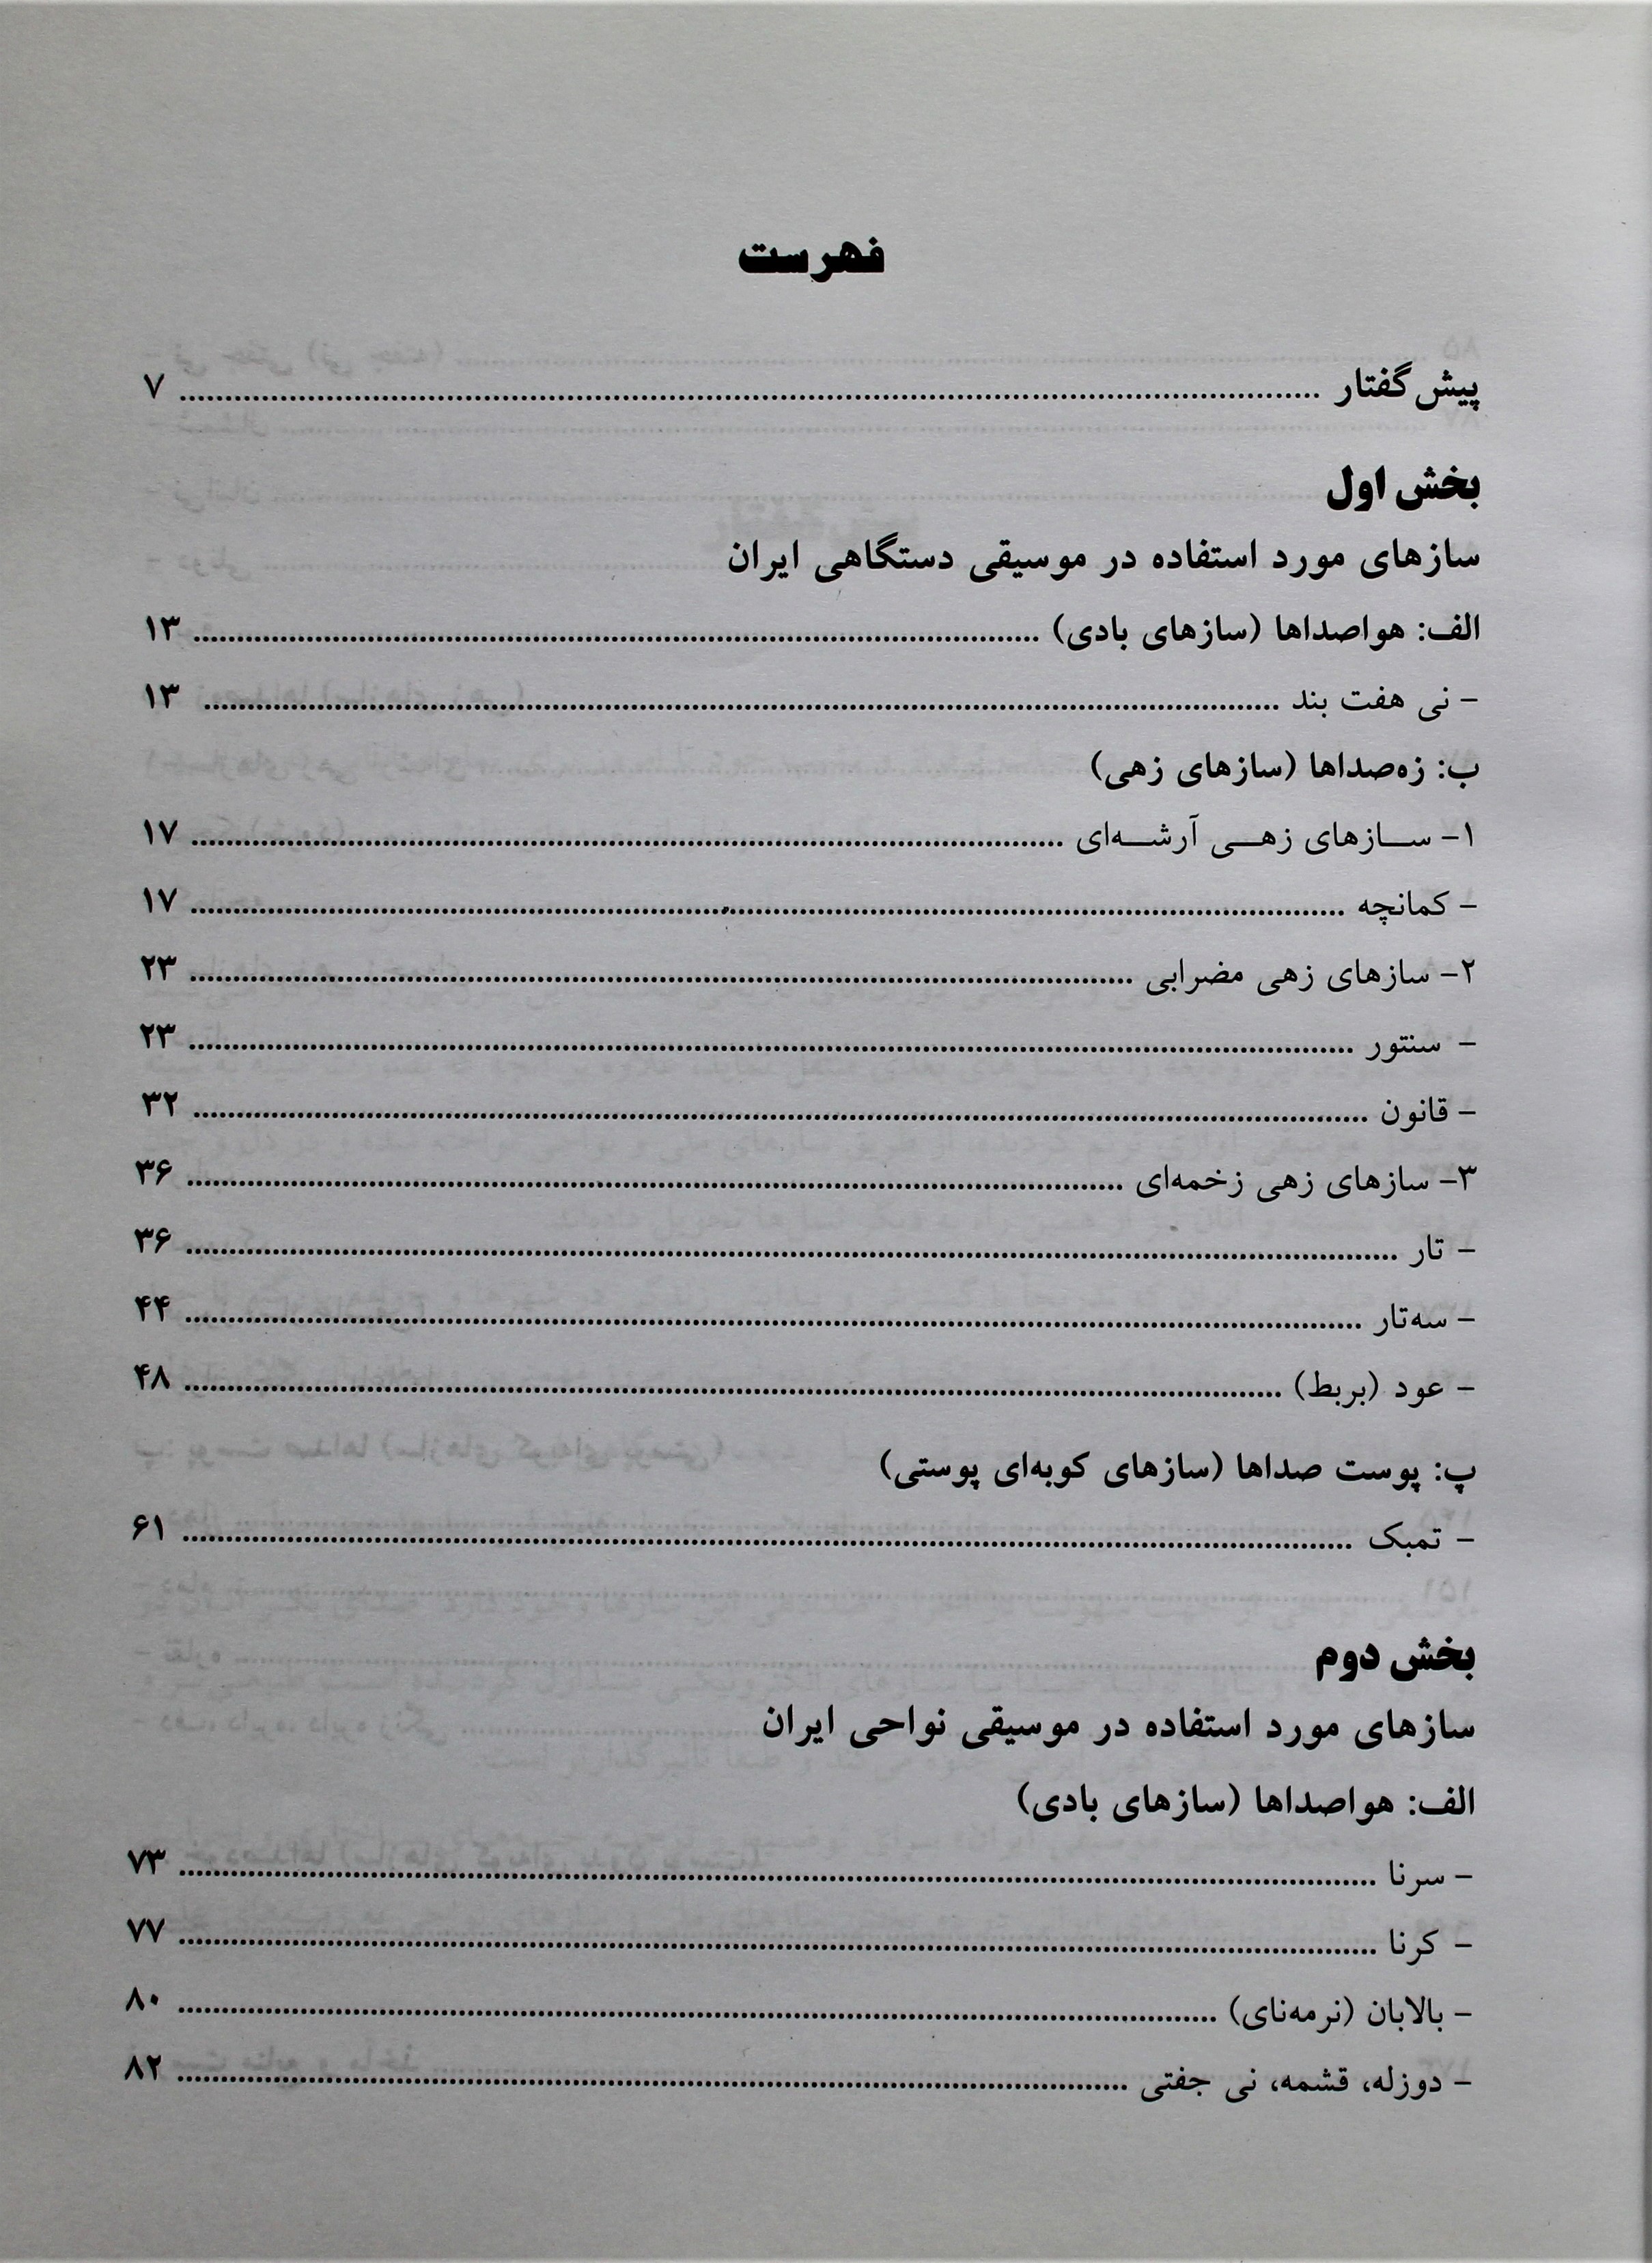 فهرست
پیش گفتار ........ ۷
بخش اول
سازهای مورد استفاده در موسیقی دستگاهی ایران
الف: هواصداها (سازهای بادی) ........ ۱۳
- نی هفت بند ........ ۱۳
ب: زه‌صداها (سازهای زهی)
۱- ســازهای زهــی آرشــه‌ای ........ ۱۷
- کمانچه ........ ۱۷
۲- سازهای زهی مضرابی ........ ۲۳
- سنتور ........ ۲۳
- قانون ........ ۳۲
۳- سازهای زهی زخمه‌ای ........ ۳۶
- تار ........ ۳۶
- سه‌تار ........ ۴۴
- عود (بربط) ........ ۴۸
پ: پوست صداها (سازهای کوبه‌ای پوستی)
- تمبک ........ ۶۱
بخش دوم
سازهای مورد استفاده در موسیقی نواحی ایران
الف: هواصداها (سازهای بادی)
- سرنا ........ ۷۳
- کرنا ........ ۷۷
- بالابان (نرمه‌نای) ........ ۸۰
- دوزله، قشمه، نی جفتی ........ ۸۲